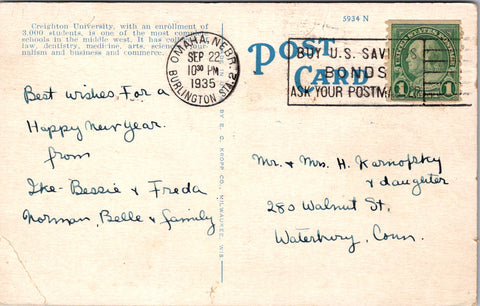 Creighton University, with an enrollment of
3,000 students, is one of the most
schools in the middle west. It has
law, dentistry, medicine, arts,
nalism and business and commerce.
5934 N
POST
CARD
OMAHA, NEBR.
SEP 22
10³⁰ PM
1935
BURLINGTON STA. 2
BUY U.S. SAVI
BONDS
ASK YOUR POSTM
UNITED STATES POSTAGE
1 1
Best wishes for a
Happy new year.
from
Ike - Bessie & Freda
Norman, Belle & family
BY E. C. KROPP CO., MILWAUKEE, WIS.
Mr. & Mrs. H. Karnofsky
& daughter
280 Walnut St.
Waterbury, Conn.